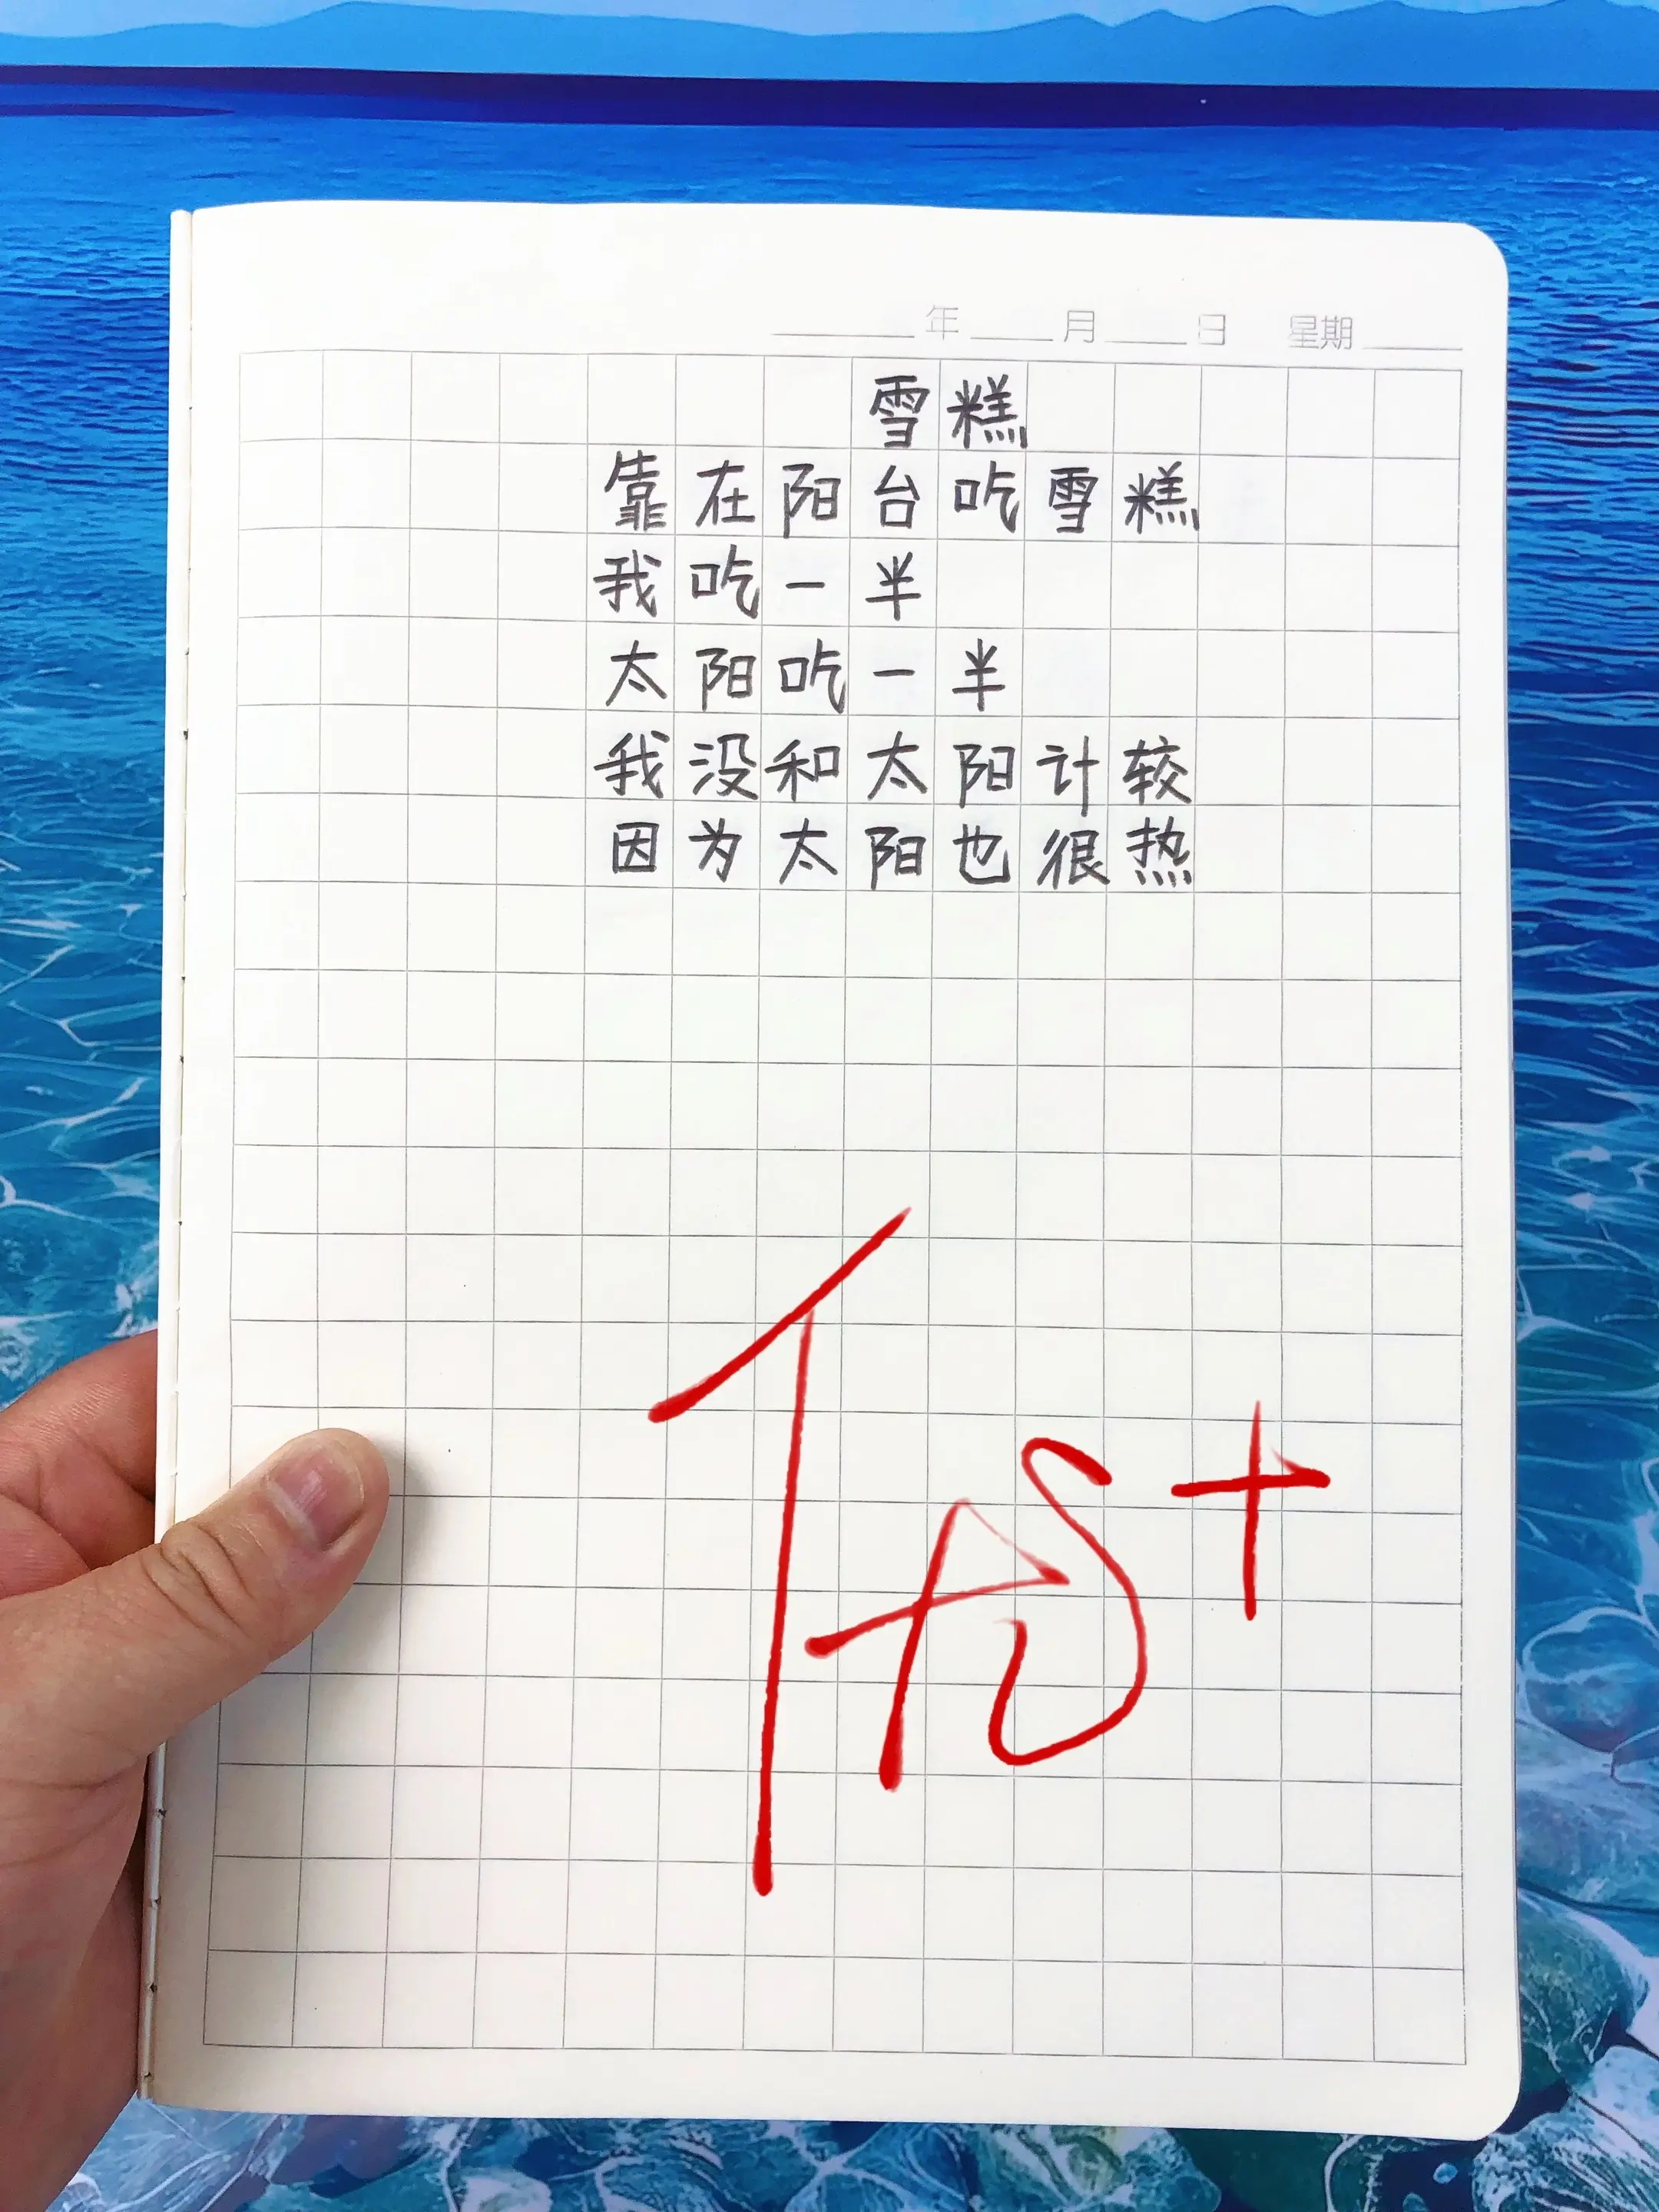 年 月 日 星期
雪糕
靠在阳台吃雪糕
我吃一半
太阳吃一半
我没和太阳计较
因为太阳也很热